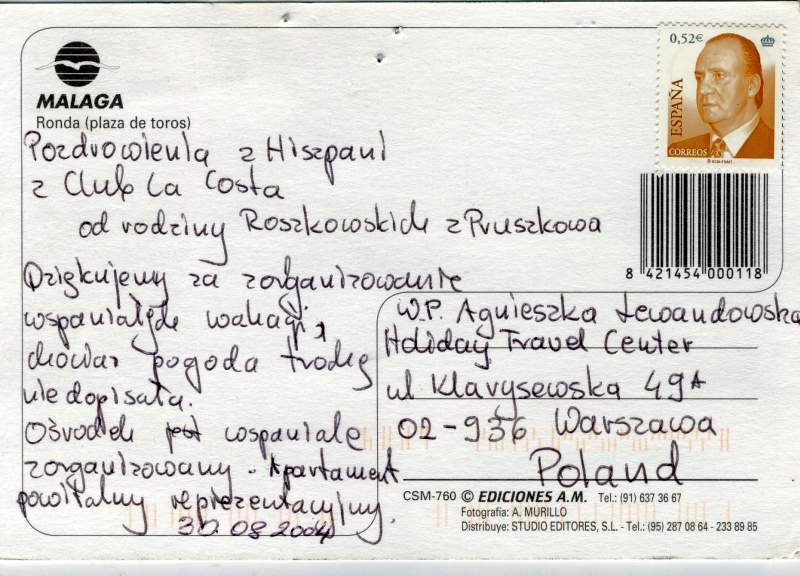 MALAGA
Ronda (plaza de toros)
Pozdrowienia z Hiszpanii
z Club La Costa
od rodziny Roszkowskich z Pruszkowa
Dziękujemy za zorganizowanie
wspaniałych wakacji,
chociaż pogoda trochę
nie dopisała.
Ośrodek jest wspaniale
zorganizowany. Apartament
powitalny reprezentacyjny.
30.08.2004
0,52€
ESPAÑA
CORREOS
8 421454 000118
W.P. Agnieszka Lewandowska
Holiday Travel Center
ul Klarysewska 49A
02-936 Warszawa
Poland
CSM-760 © EDICIONES A.M. Tel.: (91) 637 36 67
Fotografía: A. MURILLO
Distribuye: STUDIO EDITORES, S.L. - Tel.: (95) 287 08 64 - 233 89 85